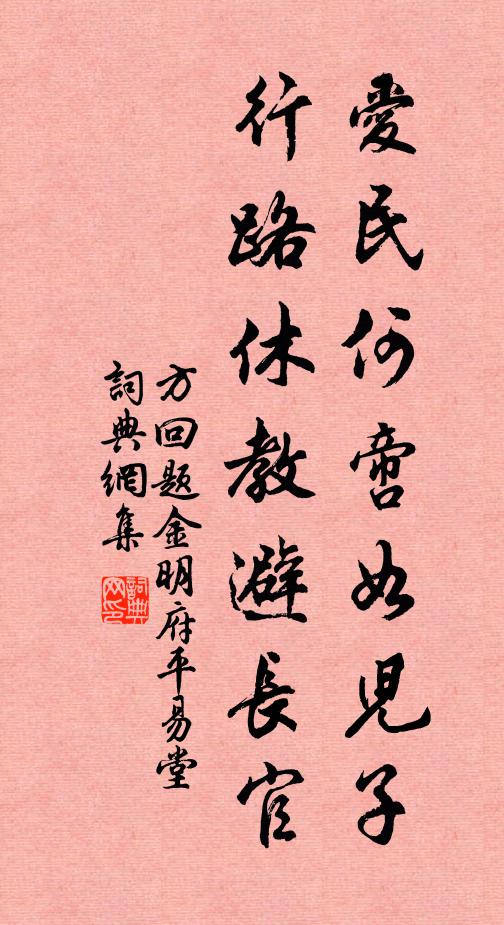 愛民何啻如兒子
行路休教避長官
方回題金明府平易堂
詞典網集
詞典
网印